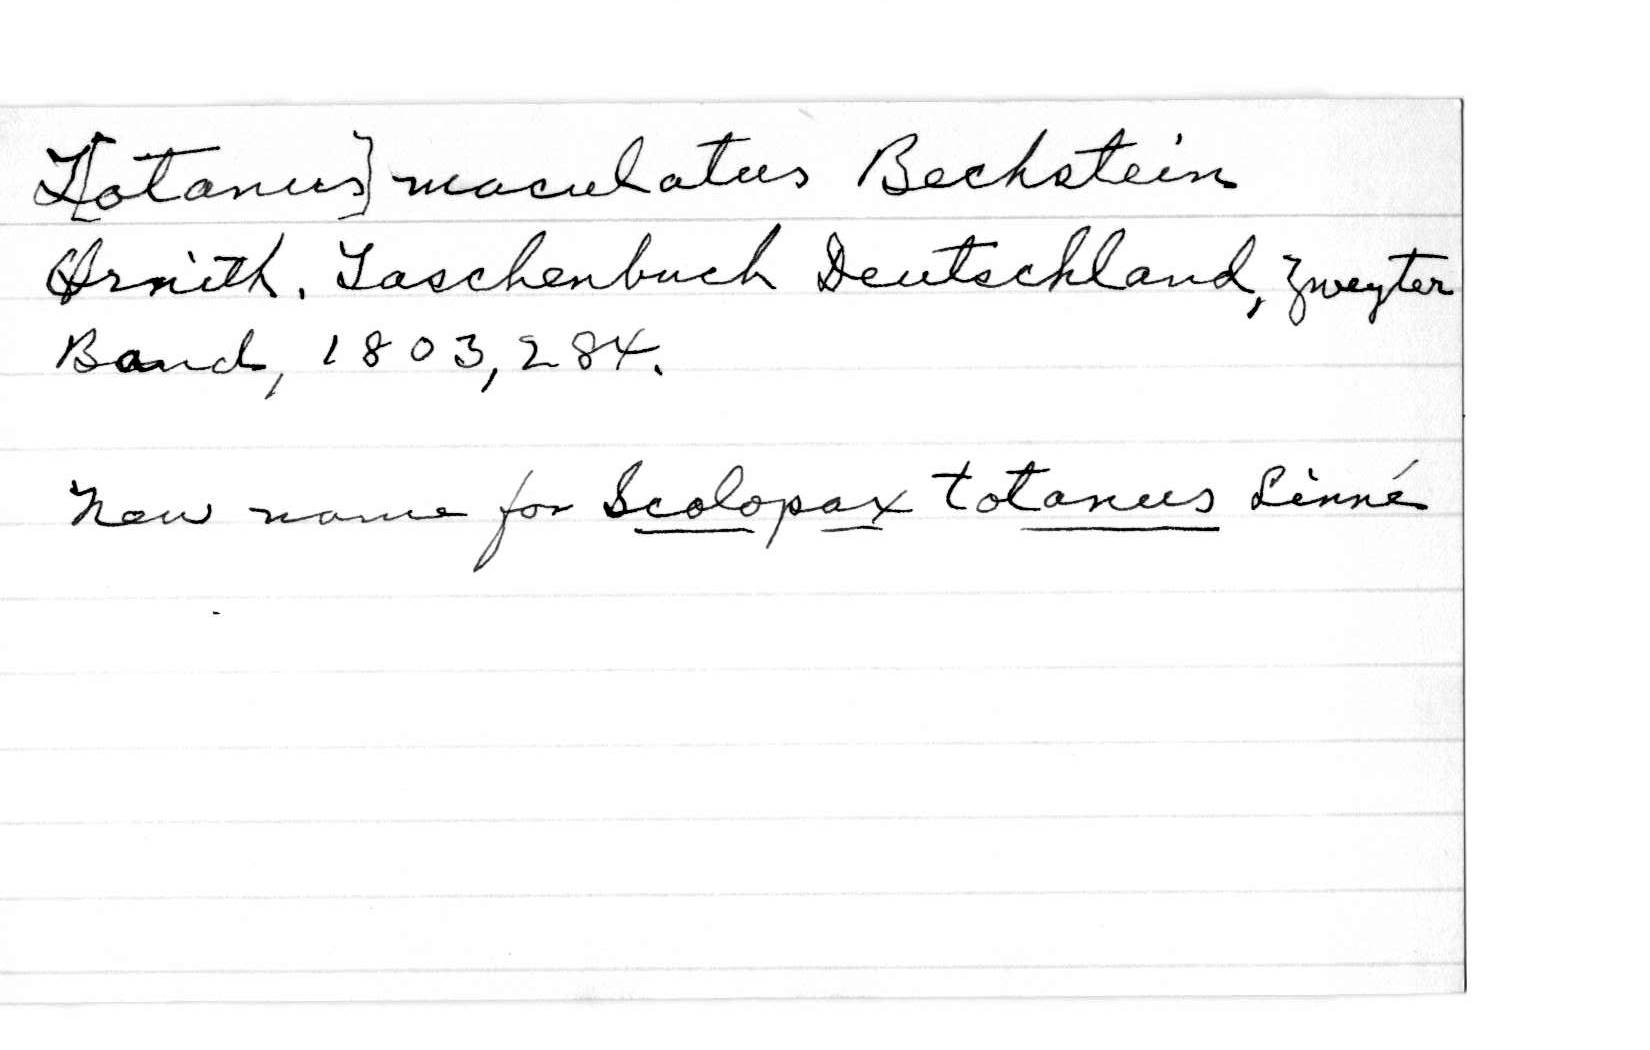 T[otanus] maculatus Bechstein
Ornith. Taschenbuch Deutschland, Zweyter
Band, 1803, 284.
New name for Scolopax totanus Linné